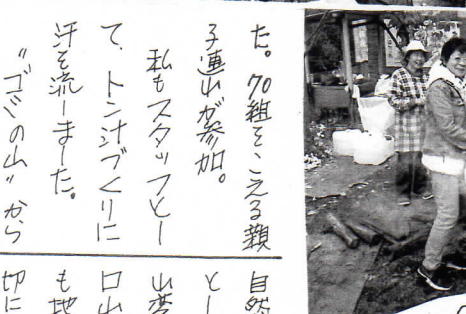 た。70組をこえる親
子連れが参加。
私もスタッフとし
て、トン汁づくりに
汗を流しました。
"ゴミの山"から
自然
とし
山
口山
も地
切に